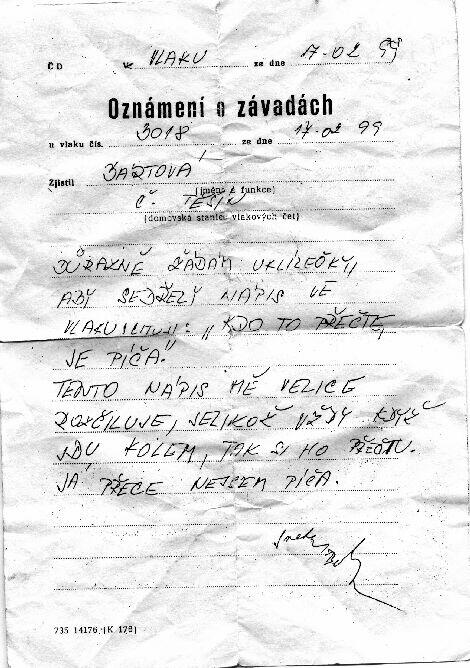 ČD v VLAKU ze dne 17.02 99
Oznámení o závadách
u vlaku čís. 3018 ze dne 17.02 99
Zjistil BARTOVÁ
(jméno a funkce)
Č. TĚŠÍN
(domovská stanice vlakových čet)
DŮRAZNĚ ŽÁDÁM UKLÍZEČKY,
ABY SEDŘELY NÁPIS VE
VLAKU : „ KDO TO PŘEČTE,
JE PÍČA."
TENTO NÁPIS MĚ VELICE
ROZČILUJE, JELIKOŽ VŽDY KDYŽ
JDU KOLEM, TAK SI HO PŘEČTU.
JÁ PŘECE NEJSEM PÍČA.
735 14176 (K 178)